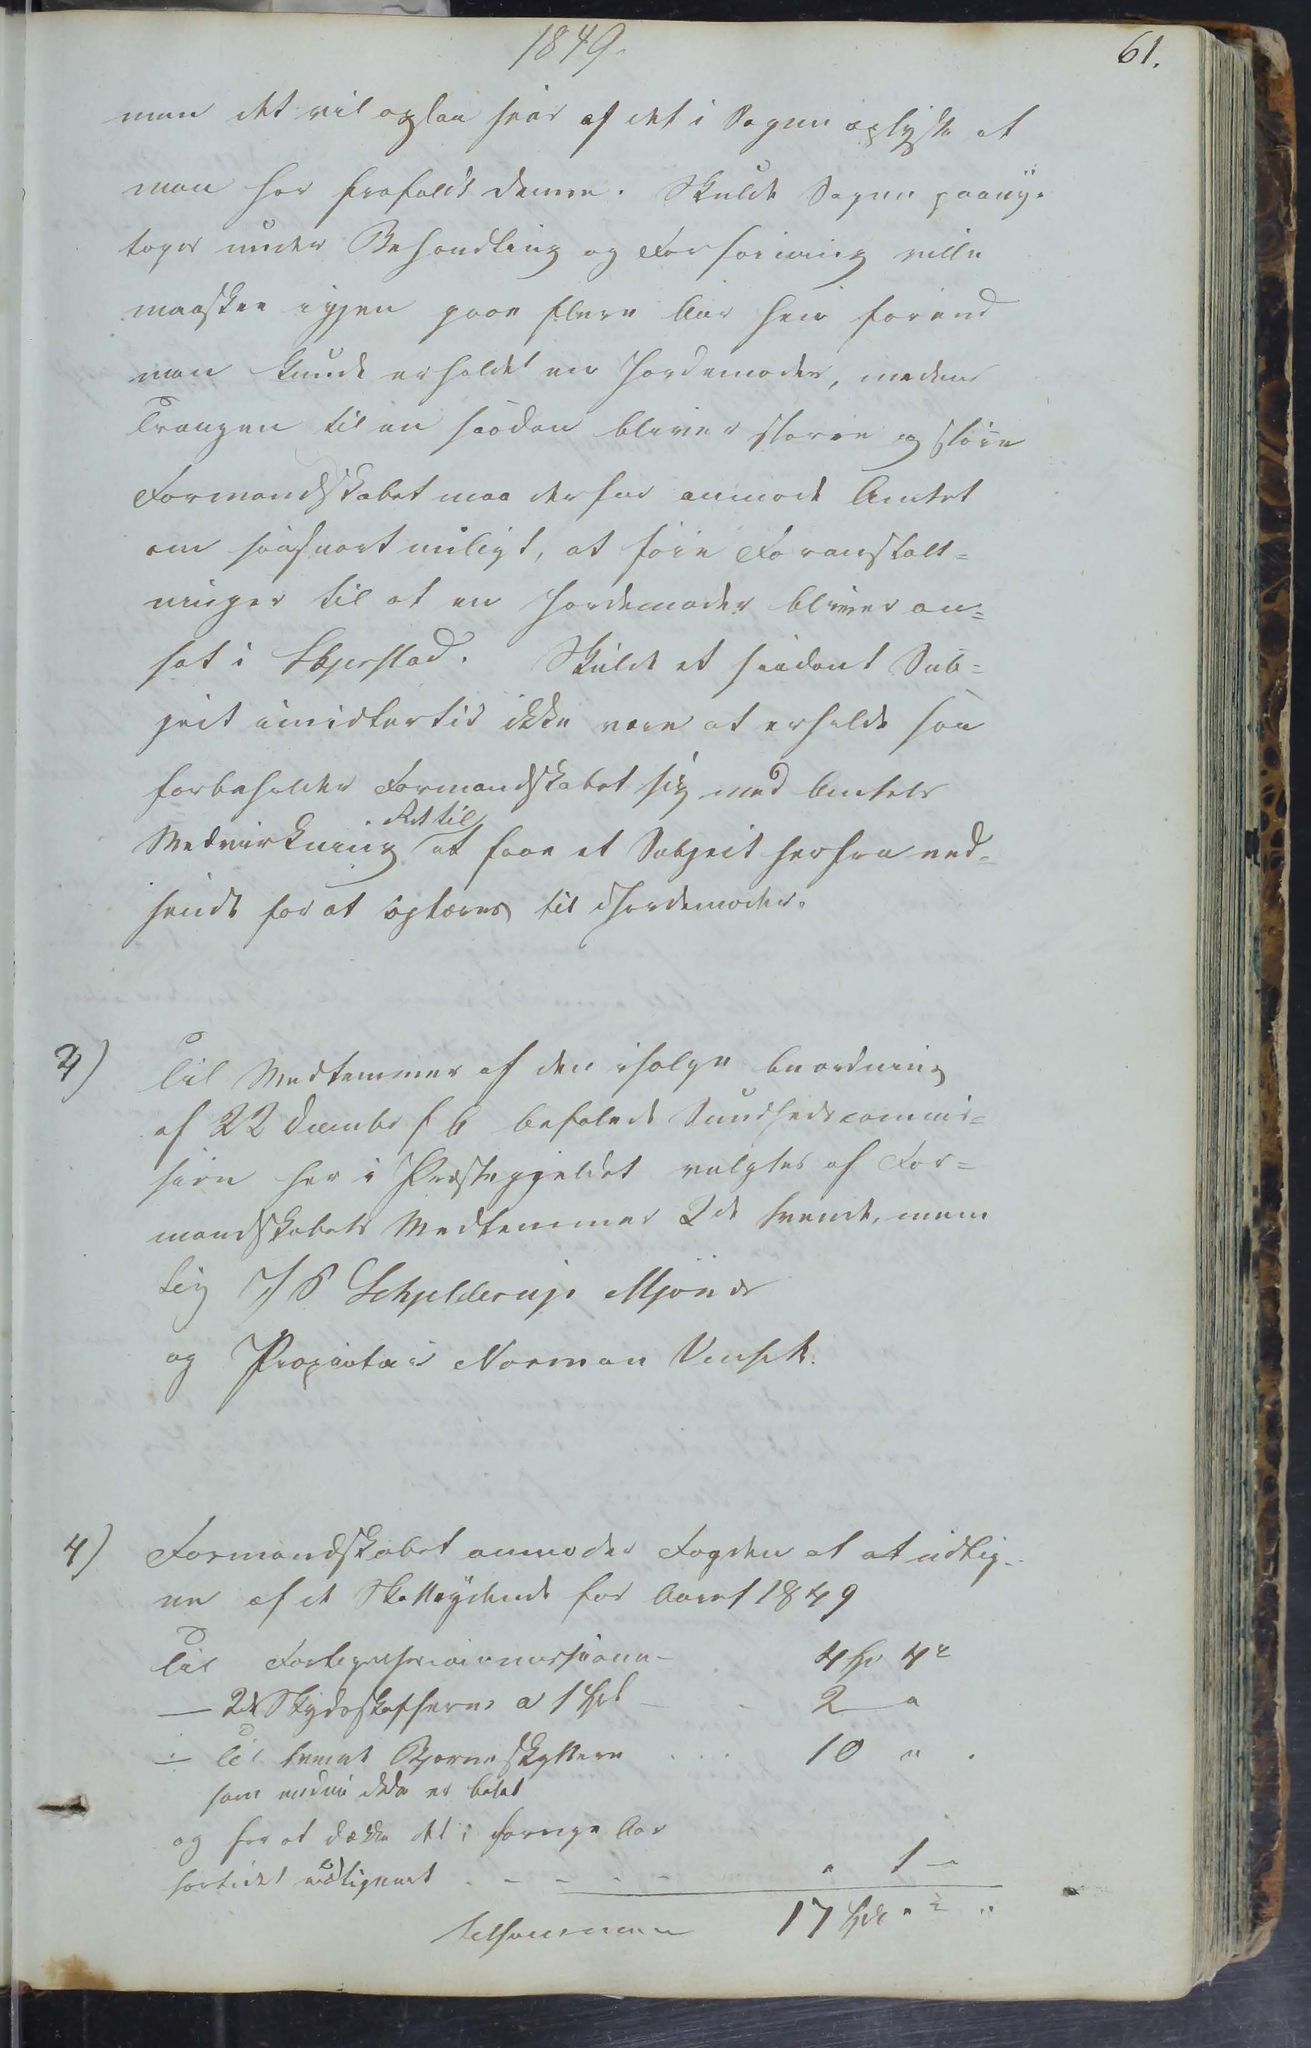 1849.
61.
men det vil opstaa heir af det i Sagen oplyste at
man har frafaldt denne. Skulde Sagen paany
tages under Behandling og Forhøining ville
maaskee igjen gaae flere Aar hen forend
man kunde erholdt en Jordemoder, medens
Trangen til en saadan bliver større og større
Formandskabet maa derfor anmode Amtet
om saasnart muligt, at føie Foranstalt=
ninger til at en Jordemoder bliver an=
sat i Skjerstad. Skulde et saadant Sub=
ject imidlertid ikke være at erholde saa
forbeholder Formandskabet sig med Amtets
Medvirkning Ret til at faae et Subject herfra ned-
sendt for at oplæres til Jordemoder.
3) Til Medlemmer af den ifølge Anordning
af 22 Decembr f A befalede Sundhedscommis=
sion her i Præstegjeldet valgtes af For=
mandskabets Medlemmer 2de Mænd, nem
lig J P Schjelderup Mjönes
og Propriotair Norman Venset.
4) Formandskabet anmoder Fogden at at udlig-
ne af de Skatteydende for Aaret 1849
Til Forligelsescommissionen - 4 Spd 4
- 2de Skydsskafferne a 1 Spd - 2 "
- Til Bjørneskyttere ... 10 " .
som endnu ikke er betalt
og for at dække det i forrige Aar
forlidet udlignet - - - - " 1 -
tilsammen 17 Spd "